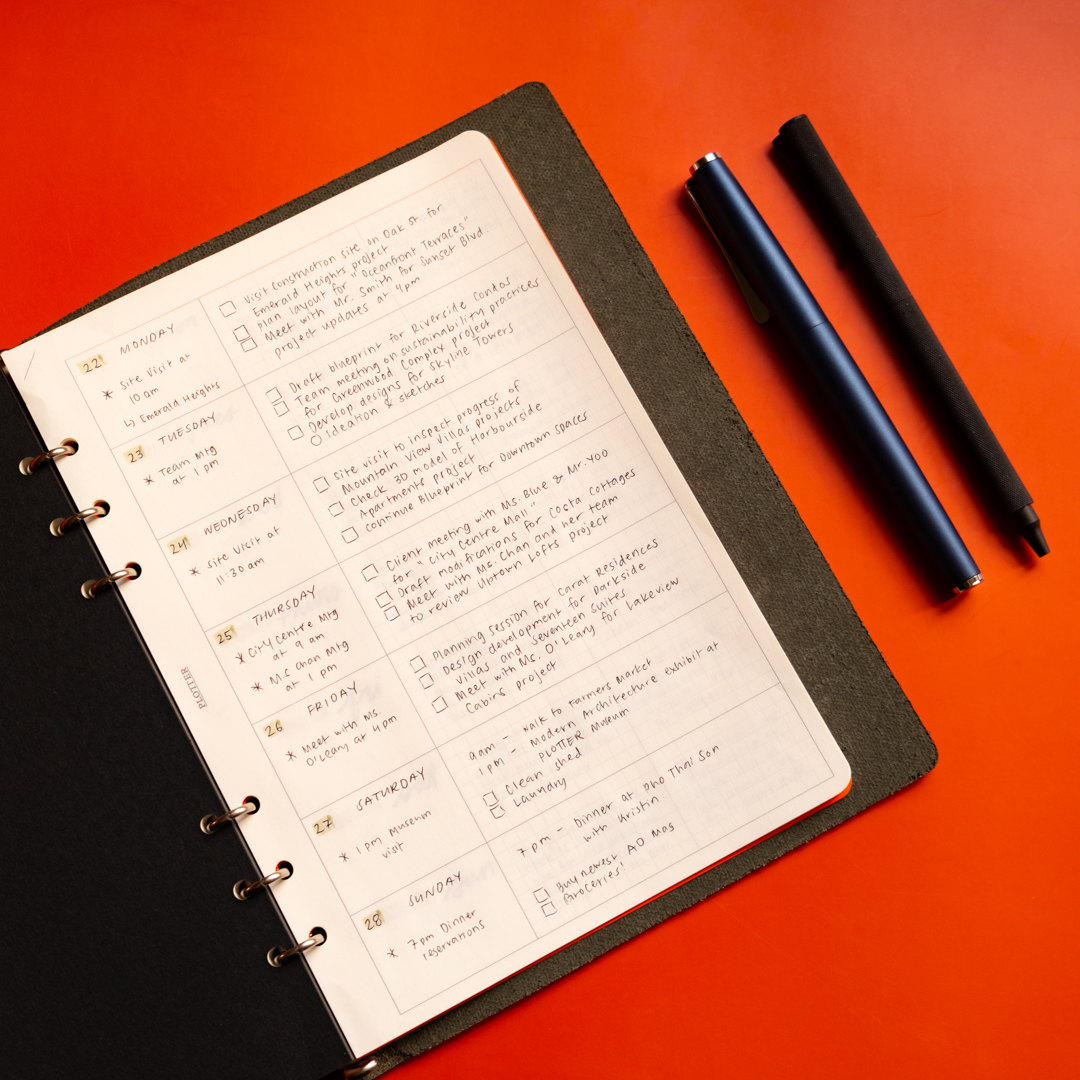 22 MONDAY
* Site Visit at
10 am
↳ Emerald Heights
☐ Visit Construction site on Oak St. for
Emerald Heights project
☐ Plan layout for "Oceanfront Terraces"
☐ Meet with Mr. Smith for Sunset Blvd
project updates at 4pm
23 TUESDAY
* Team Mtg
at 1 pm
☐ Draft blueprint for Riverside Condos
☐ Team meeting on sustainability practices
for Greenwood Complex project
☐ Develop designs for Skyline Towers
○ Ideation & sketches
24 WEDNESDAY
* Site Visit at
11:30 am
☐ Site visit to inspect progress of
Mountain View Villas projects
☐ Check 3D model of Harbourside
Apartments project
☐ Continue Blueprint for Downtown spaces
25 THURSDAY
* City Centre Mtg
at 9 am
* Ms. Chan Mtg
at 1 pm
☐ Client meeting with Ms. Blue & Mr. Yoo
for "City Centre Mall"
☐ Draft modifications for Costa Cottages
☐ Meet with Ms. Chan and her team
to review Uptown Lofts project
26 FRIDAY
* Meet with Ms.
O'Leany at 4pm
☐ Planning session for Carat Residences
☐ Design development for Parkside
Villas and Seventeen Suites
☐ Meet with Ms. O'Leany for Lakeview
Cabins project
27 SATURDAY
* 1 pm Museum
visit
9am - Walk to Farmers Market
1 pm - Modern Architecture exhibit at
PLOTTER Museum
☐ Clean shed
☐ Laundry
28 SUNDAY
* 7 pm Dinner
reservations
7 pm - Dinner at Pho Thai Son
with Kristin
☐ Buy newest AD Mag
☐ Groceries!
PLOTTER